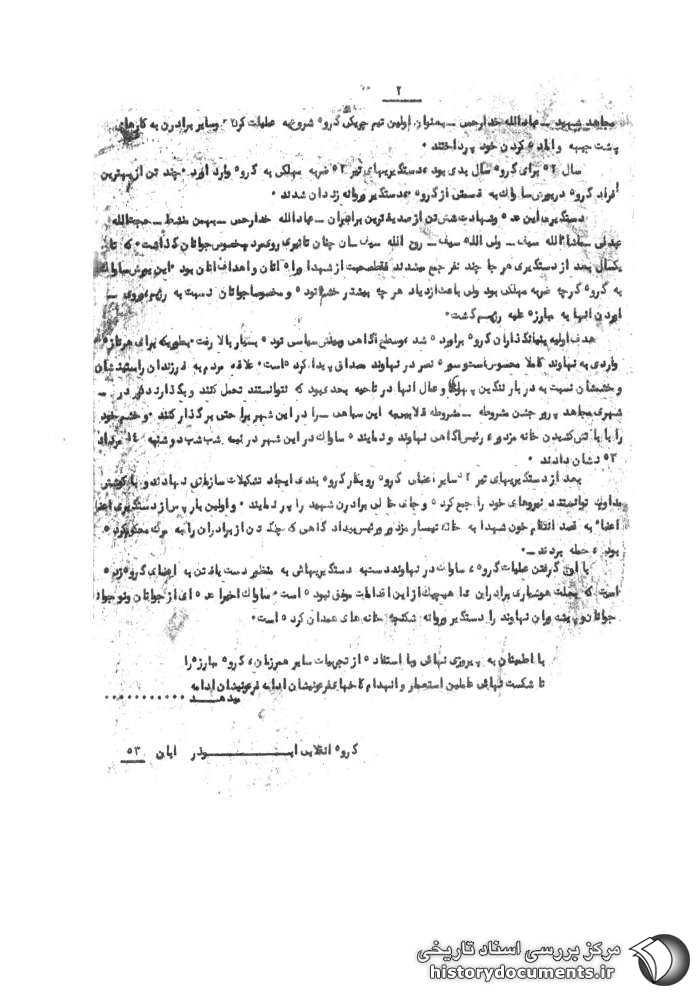 ۲
مجاهد شهید ــ عبادالله خدارحمی ــ بعنوان اولین تیم چریکی گروه شروع به عملیات کرد ۰ وسایر برادرن به کارهای
پشت جبهه و اماده کردن خود پرداختند ۰
سال ۵۲ برای گروه سال بدی بود ، دستگیریهای تیر ۵۲ ضربه مهلکی به گروه وارد اورد ۰ چند تن از بهترین
افراد گروه در یورش ساواك به قسمتی از گروه ، دستگیر وروانه زندان شدند ۰
دستگیری این عده وشهادت شش تن از صدیق ترین برادران ــ عبادالله خدارحمی ــ بهمن منشط ــ حجت الله
عبدلی ــ ماشاالله سیف ــ ولی الله سیف ــ روح الله سیف ــ ان چنان تاثیری روی مردم بخصوص جوانان گذاشت ۰ که تا
یکسال بعد از دستگیری هر جا چند نفر جمع میشدند فقط صحبت از شهدا وراه انان و اهداف انان بود ۰ این یورش ساواك
به گروه گرچه ضربه مهلکی بود ولی باعث ازدیاد هر چه بیشتر خشم توده و مخصوصا جوانان نسبت به رژیم وروی ــ
اوردن انها به مبارزه علیه رژیم گشت ۰
هدف اولیه بنیانگذاران گروه براورده شد ، سطح آگاهی وبینش سیاسی توده بسیار بالا رفت ۰ بطوریکه برای هر تازه
واردی به نهاوند کاملا محسوس است وسوره نصر در نهاوند مصداق پیدا کرده است ۰ علاقه مردم به فرزندان راستینشان
و خشمشان نسبت به دربار ننگین پهلوی وعمال انها در ناحیه بحدی بود که نتوانستند تحمل کنند و بگذارند در ــ
شهری مجاهد پرور جشن مشروطه ــ مشروطه قلابی به این سیاهی ــ را در این شهر برا حتی برگذار کنند ۰ و خشم خود
را با به اتش کشیدن خانه مزدور ، رئیس آگاهی نهاوند و نماینده ساواك در این شهر در نیمه شب شب دوشنبه ۱٤ مرداد
۵۳ نشان دادند ۰
بعد از دستگیریهای تیر ۵۲ سایر اعضای گروه رو بکار گروه بندی ایجاد تشکیلات سازمانی نهادند و با کوشش
مداوم توانستند نیروهای خود را جمع کرده و جای خالی برادرن شهید را پر نمایند ۰ و اولین بار پس از دستگیری اعضا
اعضا به قصد انتقام خون شهدا به خانه تیمسار مزدور ورئیس بیدادگاهی که چند تن از برادران را به مرگ محکوم کرده
بود ، حمله بردند ــ
با اوج گرفتن عملیات گروه ، ساواك در نهاوند دست به دستگیریهائی به منظور دست یافتن به اعضای گروه زده
است که بعلت هوشیاری برادر این ما هیچیك از این اقدامات موفق نبوده است ۰ ساواك اخیرا عده ای از جوانان ونوجوا
جوانان و پیشه وران نهاوند را دستگیر وروانه شکنجه خانه های همدان کرده است ۰
با اطمینان به پیروزی نهائی وبا استفاده از تجربیات سایر همرزمان ، گروه مبارزه را
تا شکست نهائی عاملین استعمار و انهدام کاخهای فرعونیشان ادامه فرعونیشان ادامه
میدهد ۰۰۰۰۰۰۰۰۰۰۰
گروه انقلابی ابـــــــــوذر ابان ۵۳
مرکز بررسی اسناد تاریخی
historydocuments.ir